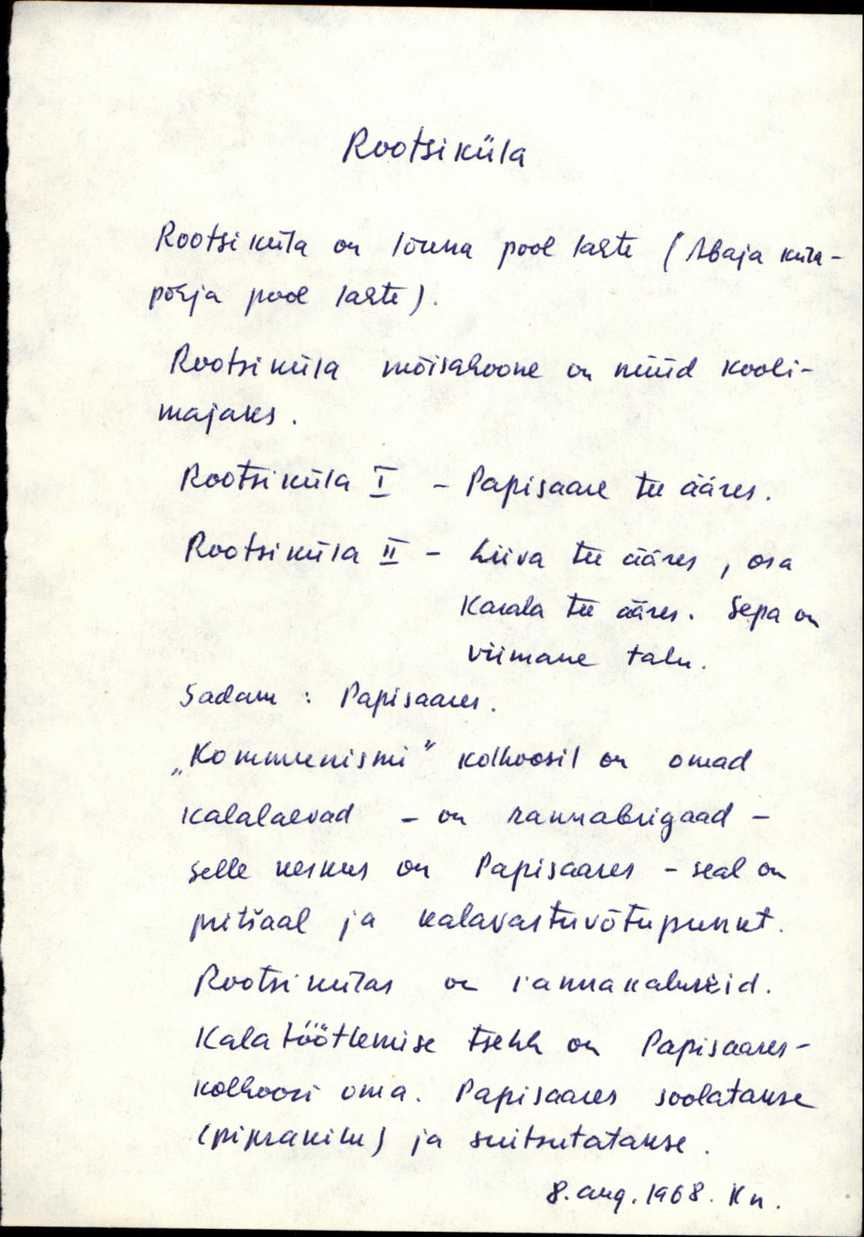 Rootsiküla
Rootsiküla on lõuna pool lahte (Abaja küla -
põhja pool lahte).
Rootsiküla mõisahoone on nüüd kooli-
majaks.
Rootsiküla I - Papisaare tee ääres.
Rootsiküla II - Liiva tee ääres, osa
Karala tee ääres. Sepa on
viimane talu.
Sadam : Papisaares.
„Kommunismi" kolhoosil on omad
kalalaevad - on rannabrigaad -
selle keskus on Papisaares - seal on
pritšaal ja kalavastuvõtupunkt.
Rootsikülas on rannakalureid.
Kalatöötlemise tsehh on Papisaares -
kolhoosi oma. Papisaares soolatakse
(piprakilu) ja suitsutatakse.
8. aug. 1968. Kn.